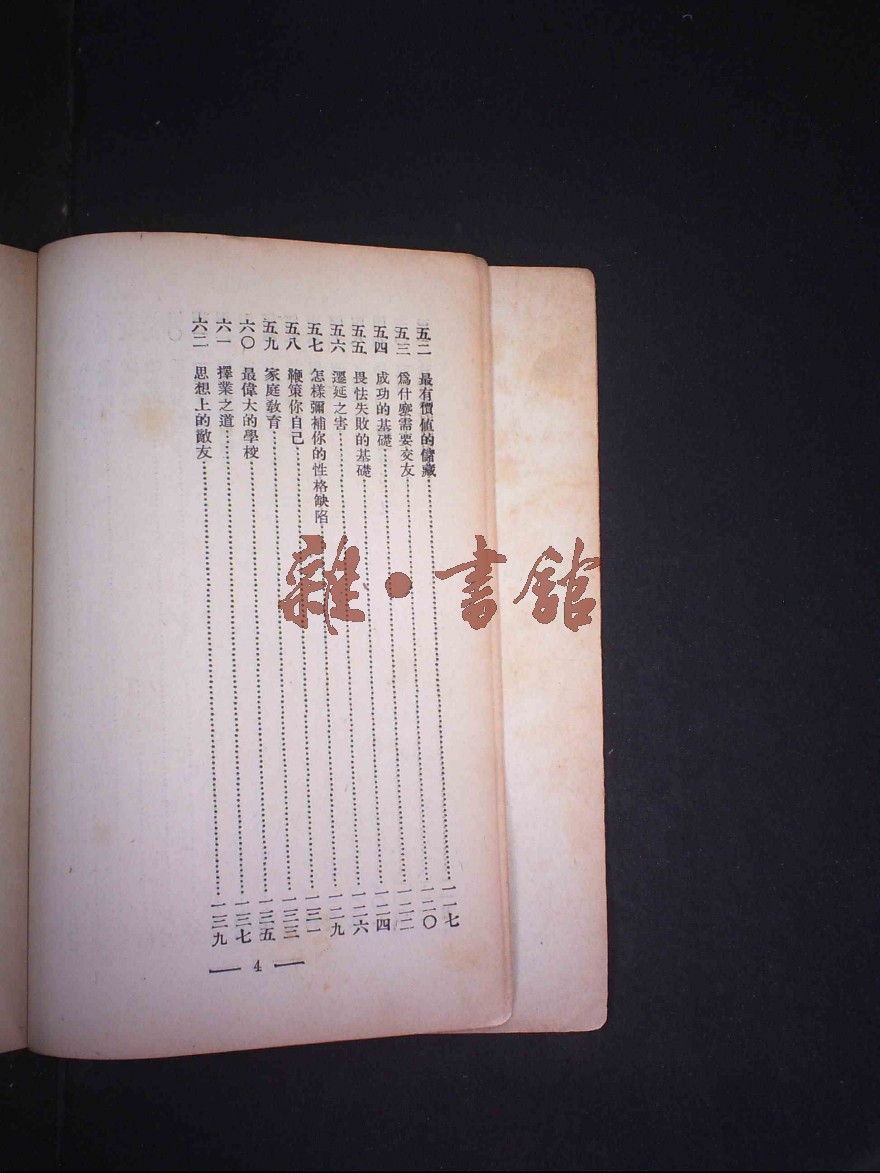 五二 最有價值的儲藏……一一七
五三 爲什麼需要交友……一二〇
五四 成功的基礎……一二二
五五 畏怯失敗的基礎……一二四
五六 遷延之害……一二六
五七 怎樣彌補你的性格缺陷……一二九
五八 鞭策你自己……一三一
五九 家庭教育……一三三
六〇 最偉大的學校……一三五
六一 擇業之道……一三七
六二 思想上的敵友……一三九
— 4 —
雜·書館